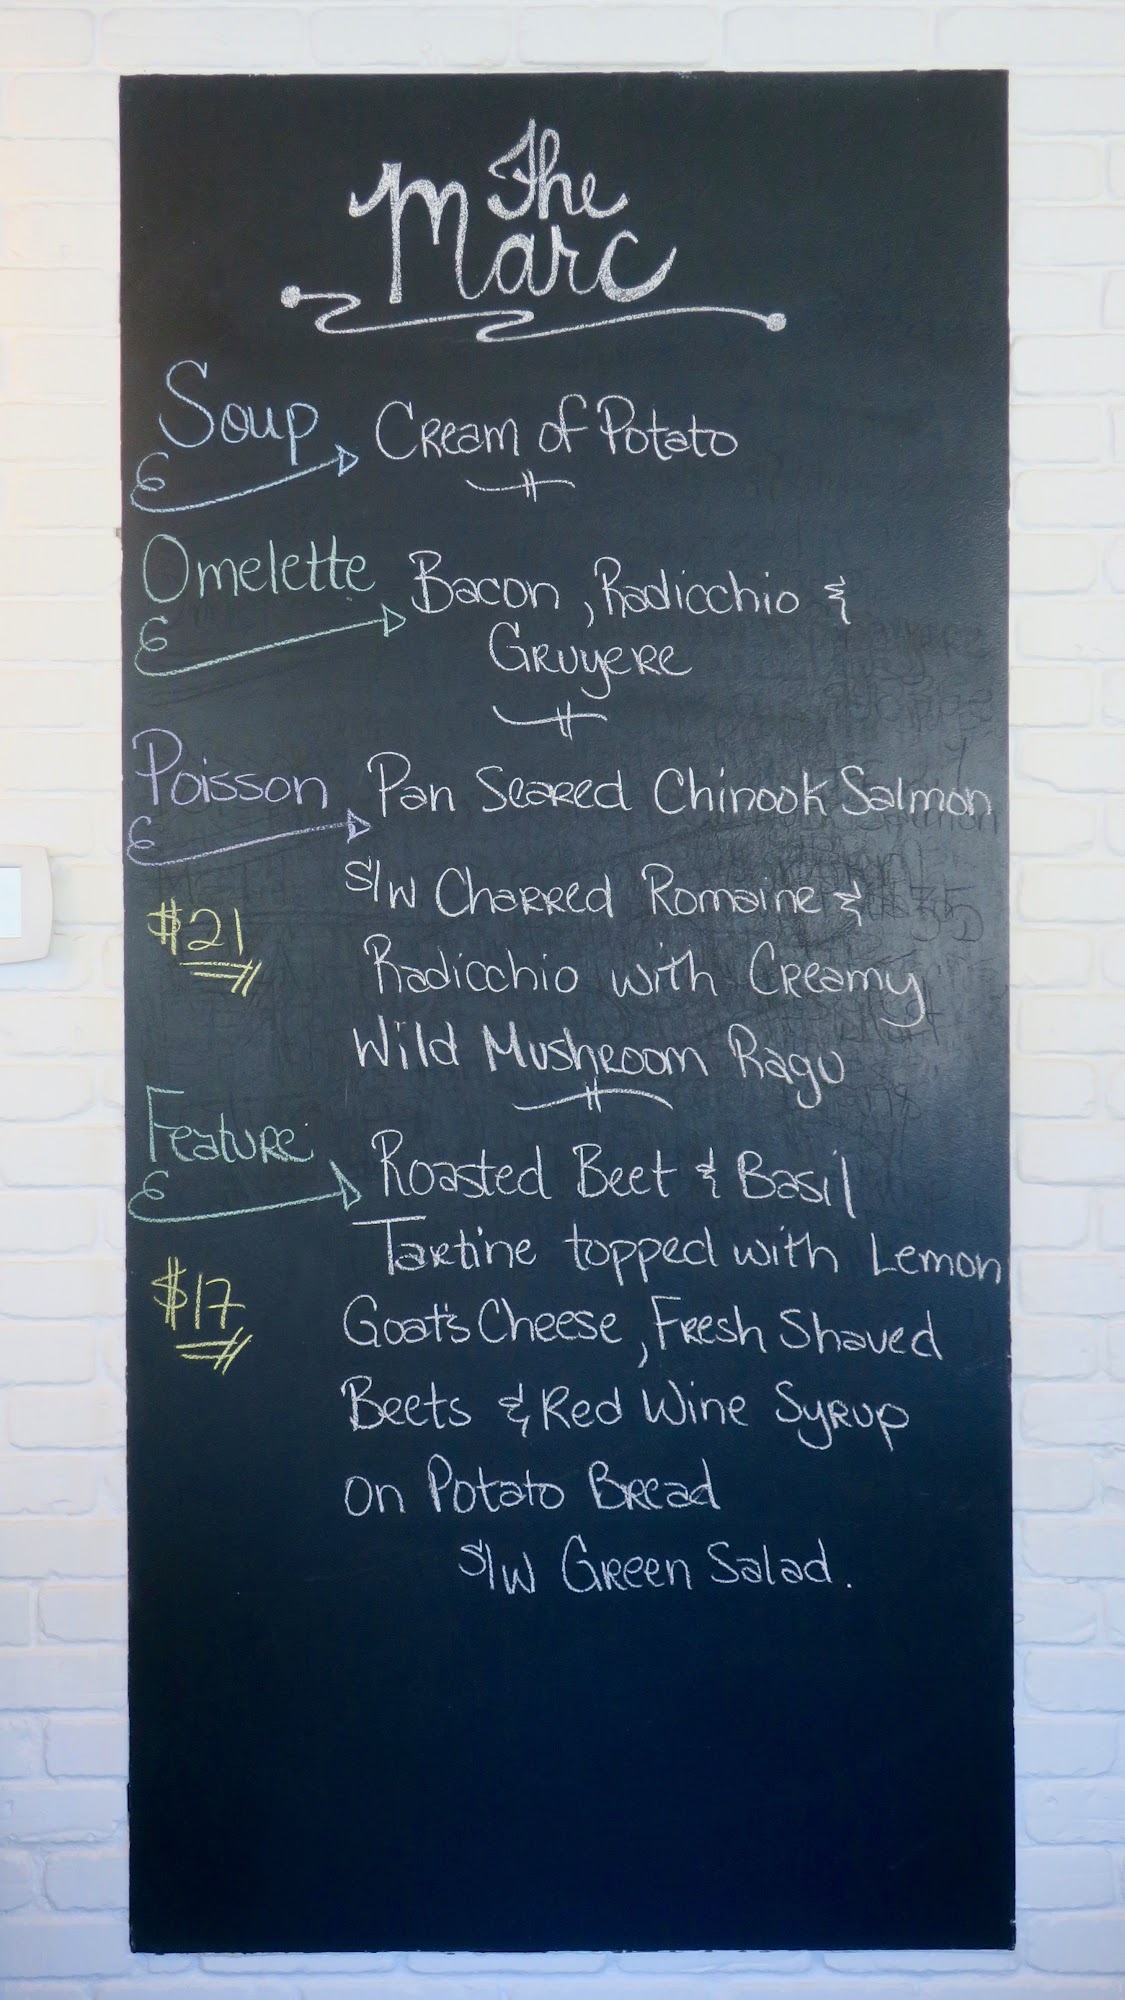 The
Marc
Soup Cream of Potato
Omelette Bacon, Radicchio &
Gruyere
Poisson Pan Seared Chinook Salmon
$21 s/w Charred Romaine &
Radicchio with Creamy
Wild Mushroom Ragu
Feature Roasted Beet & Basil
Tartine topped with Lemon
$17 Goat's Cheese, Fresh Shaved
Beets & Red Wine Syrup
on Potato Bread
s/w Green Salad.